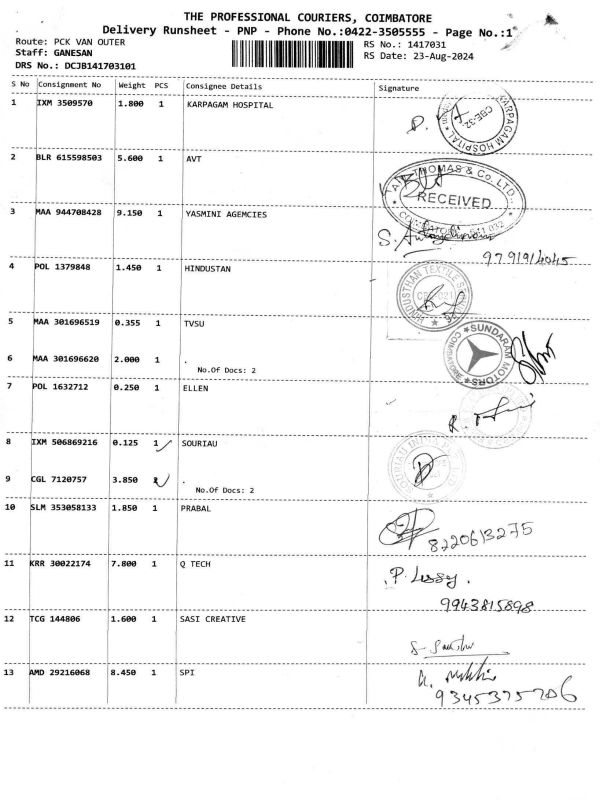 THE PROFESSIONAL COURIERS, COIMBATORE
Delivery Runsheet - PNP - Phone No.:0422-3505555 - Page No.:1
Route: PCK VAN OUTER
Staff: GANESAN
DRS No.: DCJB141703101
RS No.: 1417031
RS Date: 23-Aug-2024
S No Consignment No Weight PCS Consignee Details Signature
1 IXM 3509570 1.800 1 KARPAGAM HOSPITAL
KARPAGAM HOSPITAL
CBE-32
2 BLR 615598503 5.600 1 AVT
THOMAS & Co. LTD.
RECEIVED
3 MAA 944708428 9.150 1 YASMINI AGEMCIES
9791914045
4 POL 1379848 1.450 1 HINDUSTAN
5 MAA 301696519 0.355 1 TVSU
SUNDARAM MOTORS
6 MAA 301696620 2.000 1 .
No.Of Docs: 2
7 POL 1632712 0.250 1 ELLEN
8 IXM 506869216 0.125 1 SOURIAU
SOURIAU
9 CGL 7120757 3.850 .
No.Of Docs: 2
10 SLM 353058133 1.850 1 PRABAL
8220613275
11 KRR 30022174 7.800 1 Q TECH
P. Lessy.
9943815898
12 TCG 144806 1.600 1 SASI CREATIVE
13 AMD 29216068 8.450 1 SPI
9345375206